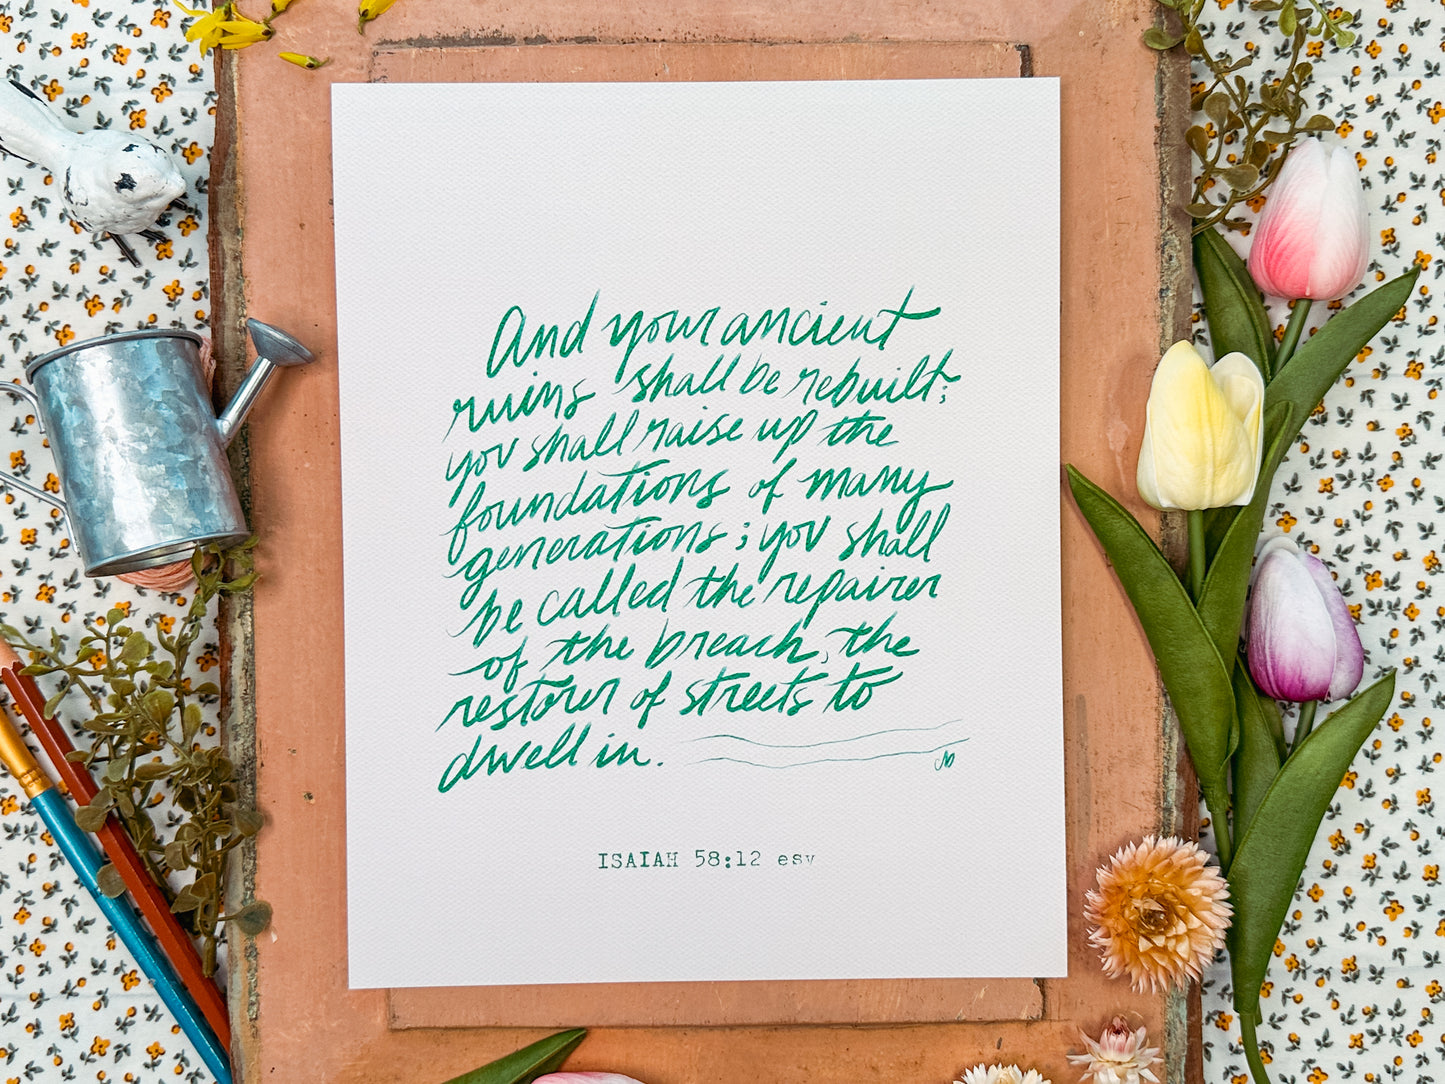 And your ancient
ruins shall be rebuilt;
you shall raise up the
foundations of many
generations; you shall
be called the repairer
of the breach, the
restorer of streets to
dwell in.
ISAIAH 58:12 esv